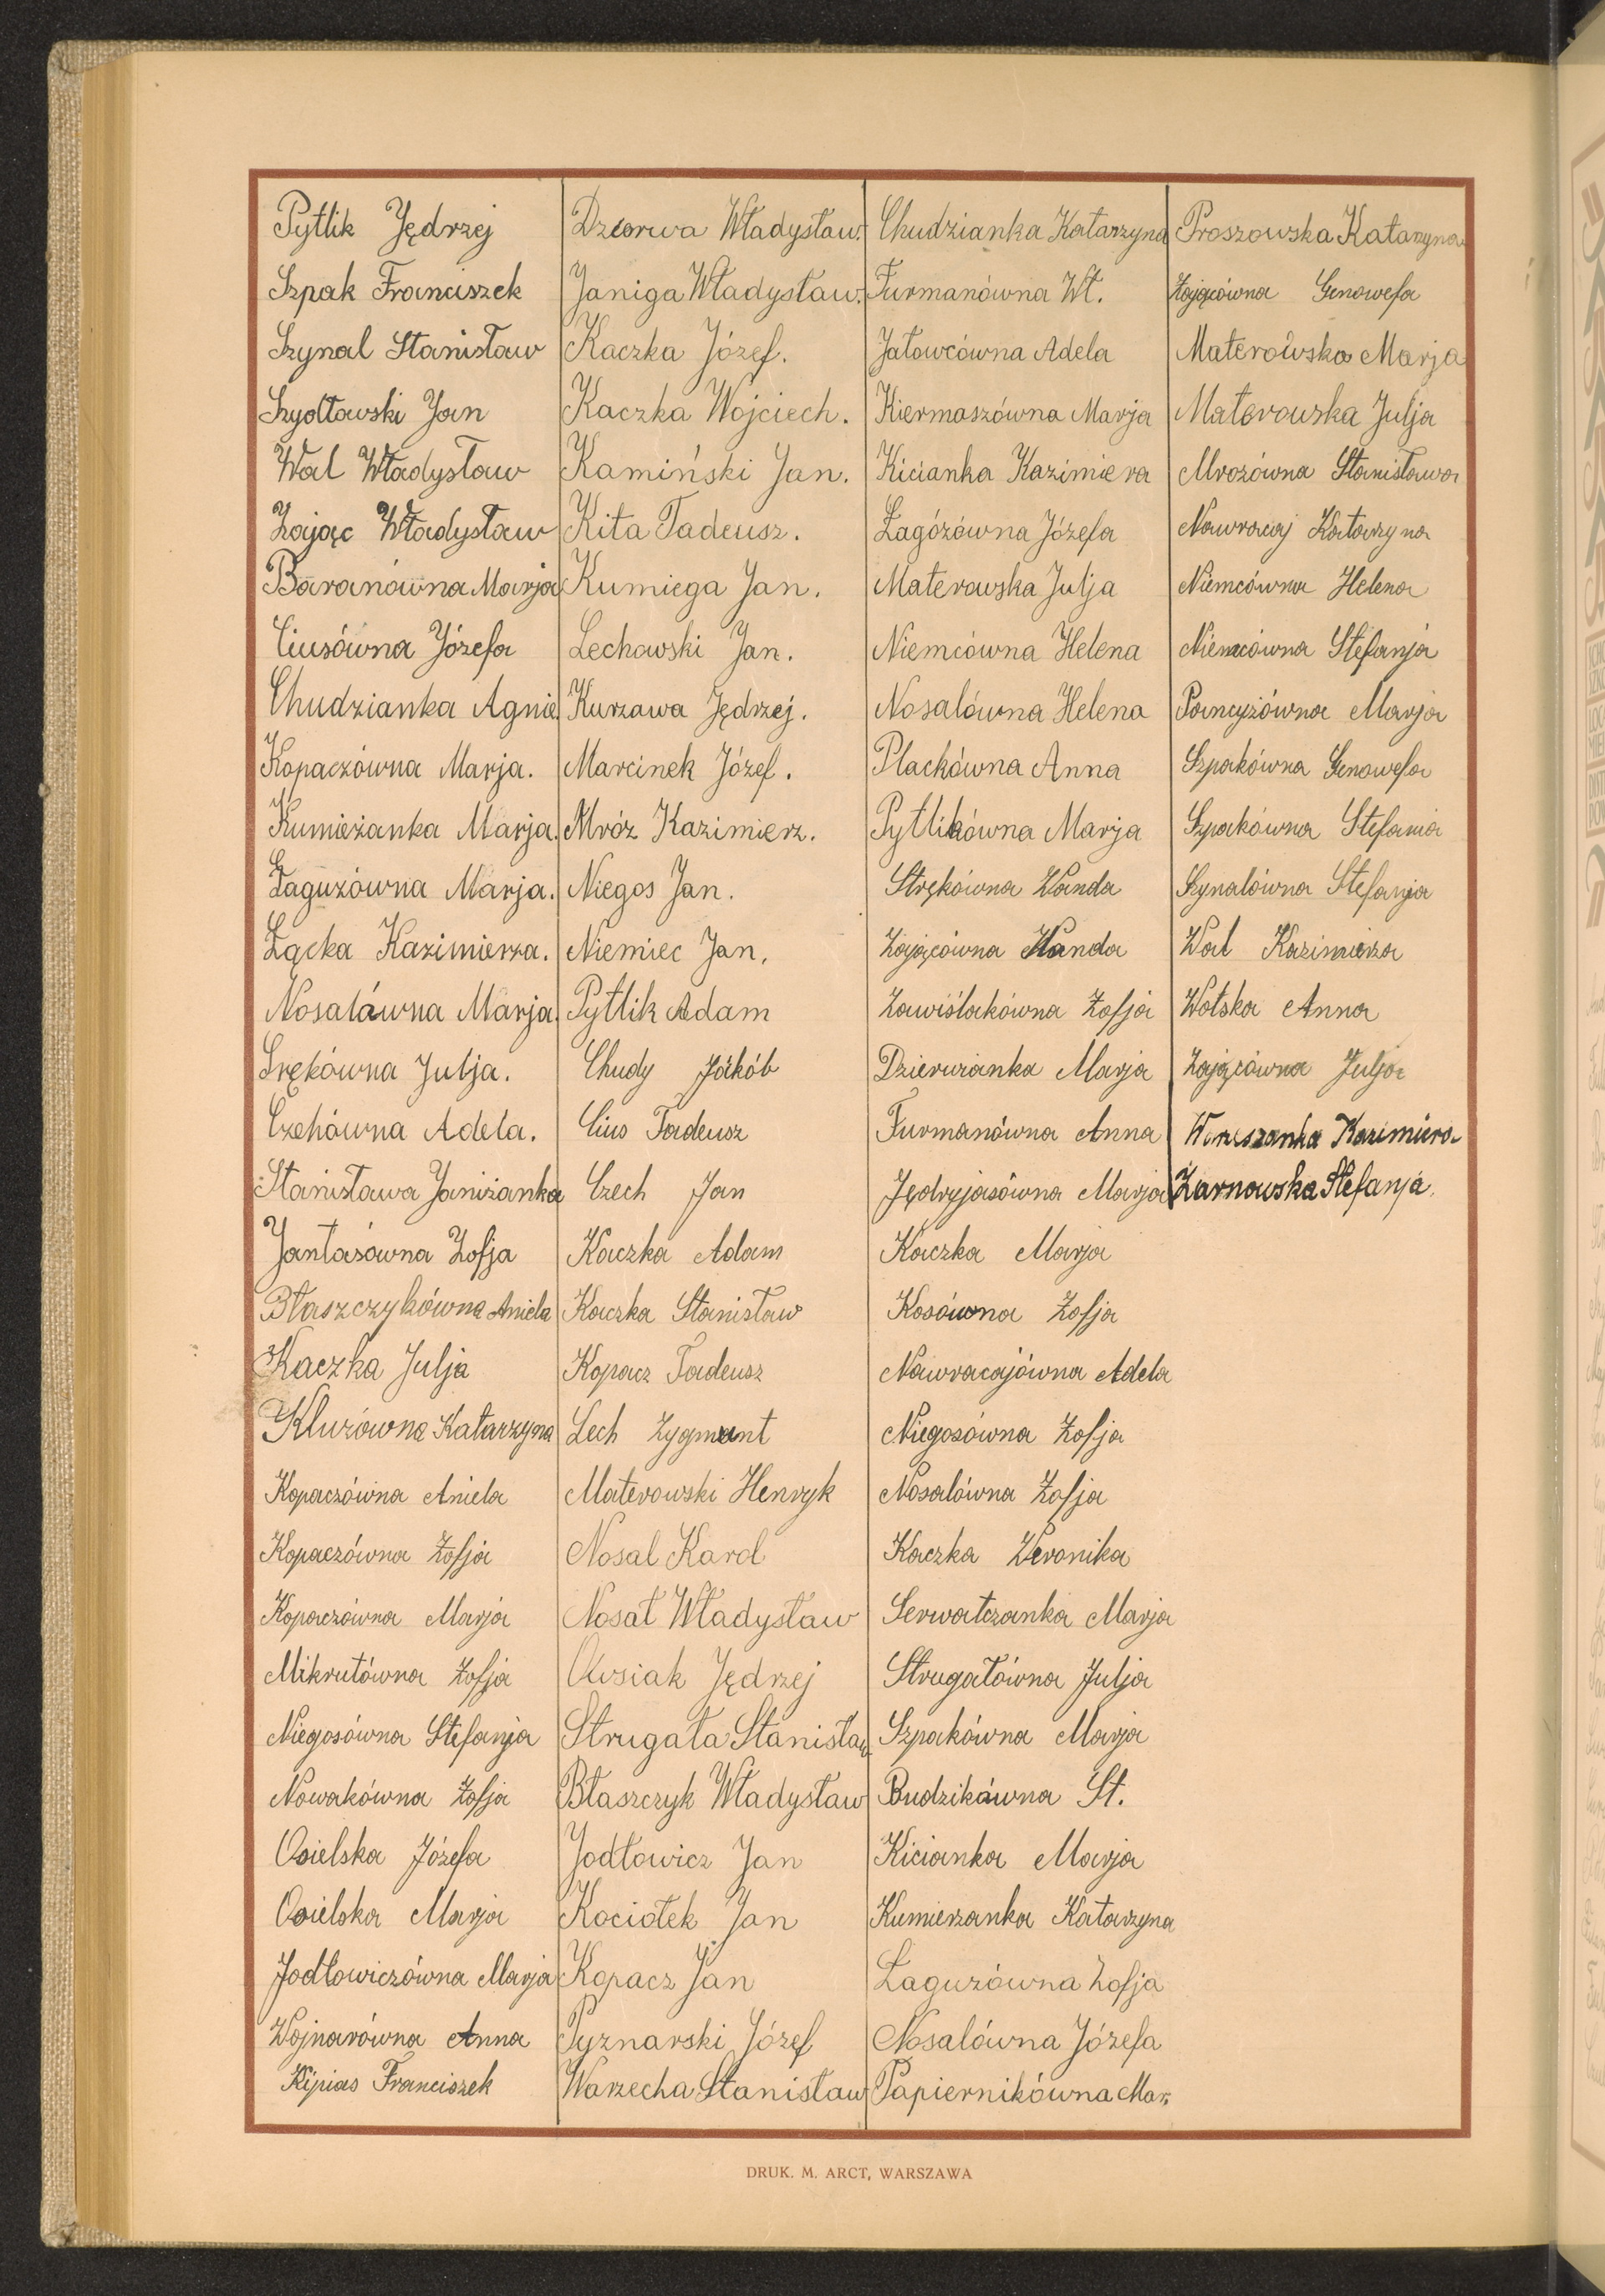 Pytlik Jędrzej
Szpak Franciszek
Szynal Stanisław
Szydłowski Jan
Wal Władysław
Zając Władysław
Baranówna Marja
Ciusówna Józefa
Chudzianka Agnie.
Kopaczówna Marja.
Kumieżanka Marja.
Łaguzówna Marja.
Łącka Kazimierza.
Nosalówna Marja.
Srękówna Julja.
Czechówna Adela.
Stanisława Janiżanka
Jantasówna Zofja
Błaszczykówna Aniela
Kaczka Julja
Kluzówna Katarzyna
Kopaczówna Aniela
Kopaczówna Zofja
Kopaczówna Marja
Mikrutówna Zofja
Niegosówna Stefanja
Nowakówna Zofja
Osielska Józefa
Osielska Marja
Jodłowiczówna Marja
Wojnarówna Anna
Kipias Franciszek
Dzierwa Władysław.
Janiga Władysław.
Kaczka Józef.
Kaczka Wojciech.
Kamiński Jan.
Kita Tadeusz.
Kumiega Jan.
Lechowski Jan.
Kurzawa Jędrzej.
Marcinek Józef.
Mróz Kazimierz.
Niegos Jan.
Niemiec Jan.
Pytlik Adam
Chudy Jakób
Cius Tadeusz
Czech Jan
Kaczka Adam
Kaczka Stanisław
Kopacz Tadeusz
Lech Zygmunt
Materowski Henryk
Nosal Karol
Nosal Władysław
Owsiak Jędrzej
Strugała Stanisław
Błaszczyk Władysław
Jodłowicz Jan
Kociołek Jan
Kopacz Jan
Pyznarski Józef
Warzecha Stanisław
Chudzianka Katarzyna
Furmanówna Wł.
Jałowcówna Adela
Kiermaszówna Marja
Kicianka Kazimiera
Łagózówna Józefa
Materowska Julja
Niemcówna Helena
Nosalówna Helena
Plackówna Anna
Pytlikówna Marja
Strękówna Wanda
Zającówna Wanda
Zawiślakówna Zofja
Dzierwianka Marja
Furmanówna Anna
Jędrzjasówna Marja
Kaczka Marja
Kosówna Zofja
Nawracajówna Adela
Niegosówna Zofja
Nosalówna Zofja
Kaczka Weronika
Serwatczanka Marja
Strugałówna Julja
Szpakówna Marja
Budzikówna St.
Kicianka Marja
Kumierzanka Katarzyna
Łaguzówna Zofja
Nosalówna Józefa
Papiernikówna Mar.
Proszowska Katarzyna
Zającówna Genowefa
Materowska Marja
Materowska Julja
Mrozówna Stanisława
Nawracaj Katarzyna
Niemcówna Helena
Niemcówna Stefanja
Pancyżówna Marja
Szpakówna Genowefa
Szpakówna Stefania
Szynalówna Stefanja
Wal Kazimierza
Wolska Anna
Zającówna Julja
Kazimiera
Żarnowska Stefanja.
DRUK. M. ARCT, WARSZAWA